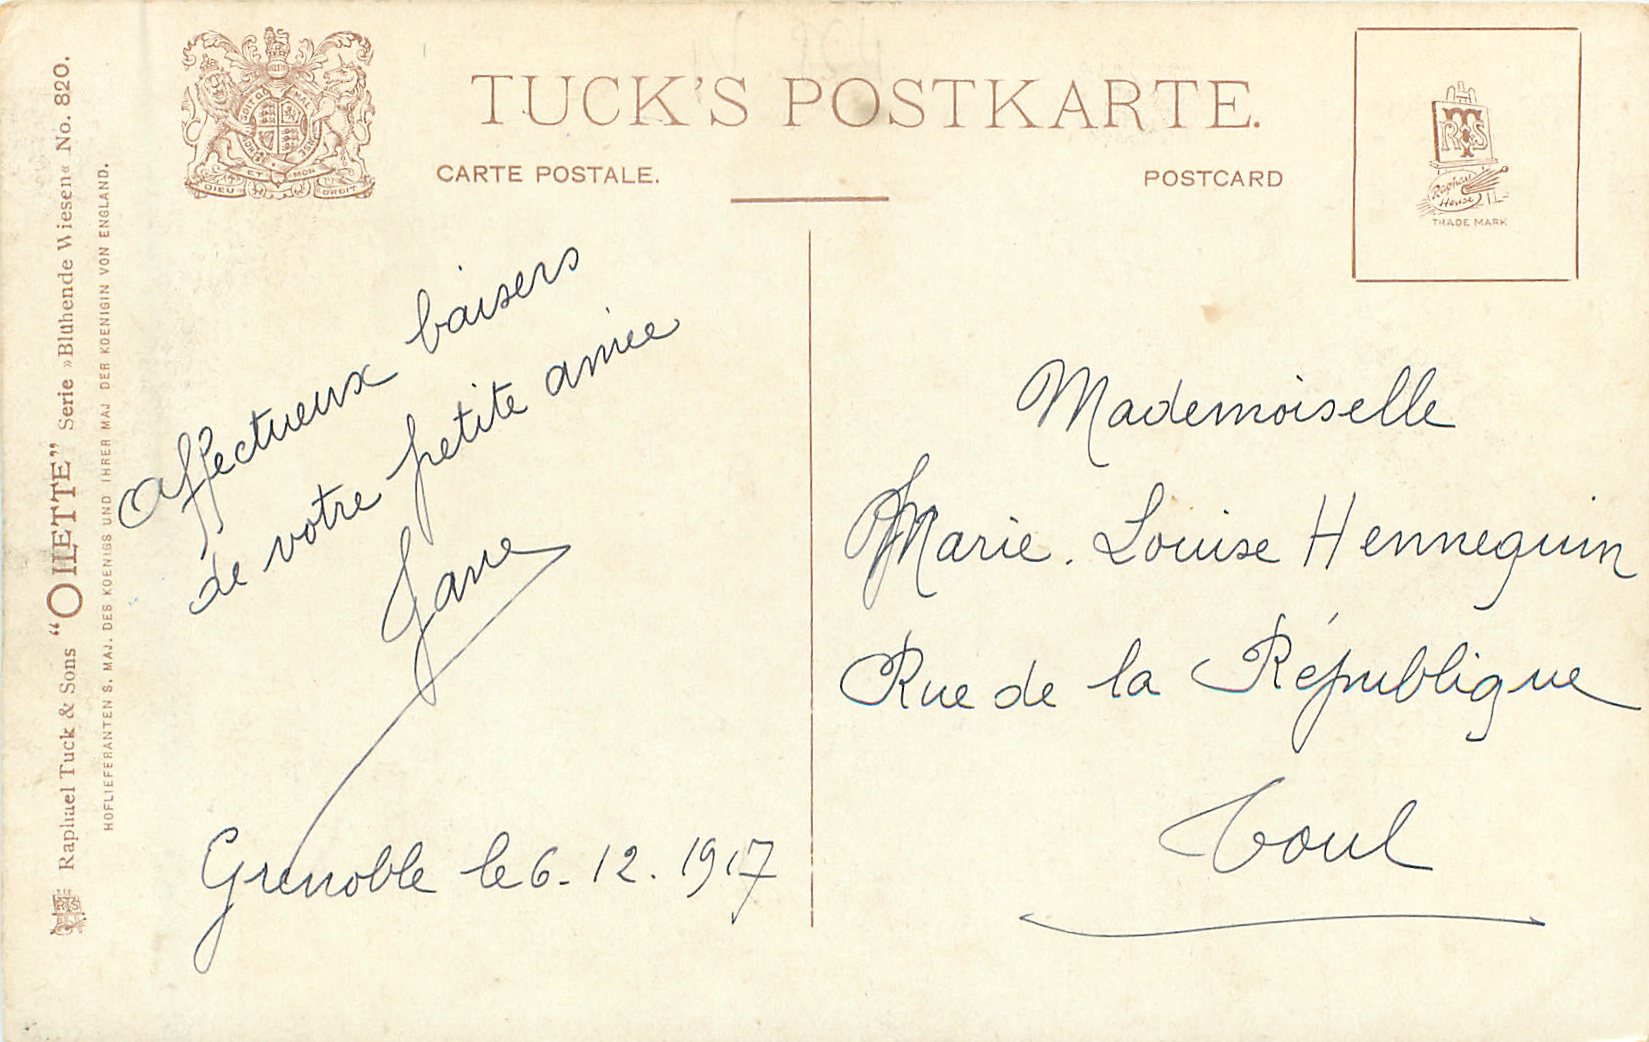 TUCK'S POSTKARTE.
CARTE POSTALE.
POSTCARD
DIEU ET MON DROIT
TRS
Raphael House
TRADE MARK
Raphael Tuck & Sons “OILETTE” Serie »Blühende Wiesen« No. 820.
HOFLIEFERANTEN S. MAJ. DES KOENIGS UND IHRER MAJ. DER KOENIGIN VON ENGLAND.
Affectueux baisers
de votre petite amie
Jane
Grenoble le 6-12.1917
Mademoiselle
Marie-Louise Hennequin
Rue de la République
Toul